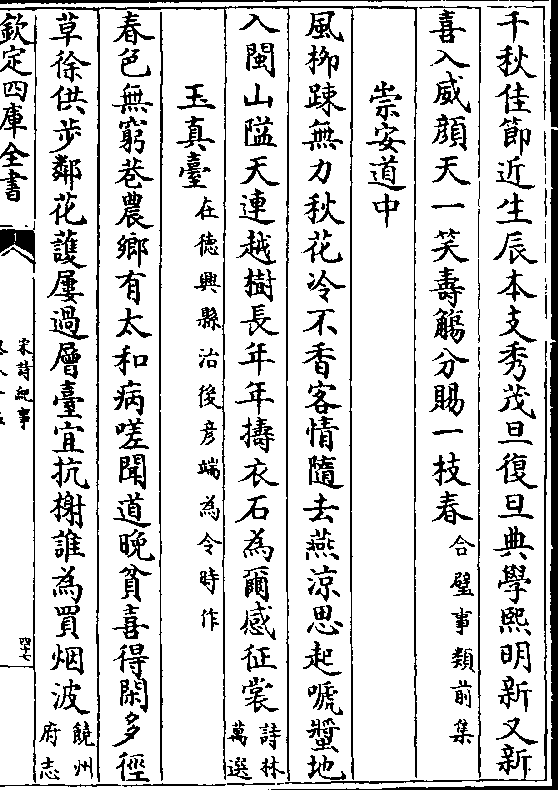 千秋佳節近生辰本支秀茂旦復旦典學熙明新又新
喜入威顔天一笑壽觴分賜一枝春合璧事類前集
崇安道中
風栁踈無力秋花冷不香客情隨去燕涼思起嗁螿地
入閩山隘天連越樹長年年擣衣石為爾感征裳詩林萬選
玉真臺在徳興縣治後彦端為令時作
春色無窮巷農鄉有太和病嗟聞道晚貧喜得閑多徑
草徐供步鄰花䕶屢過層臺宜抗榭誰為買烟波饒州府志
欽定四庫全書
宋詩紀事
四十七